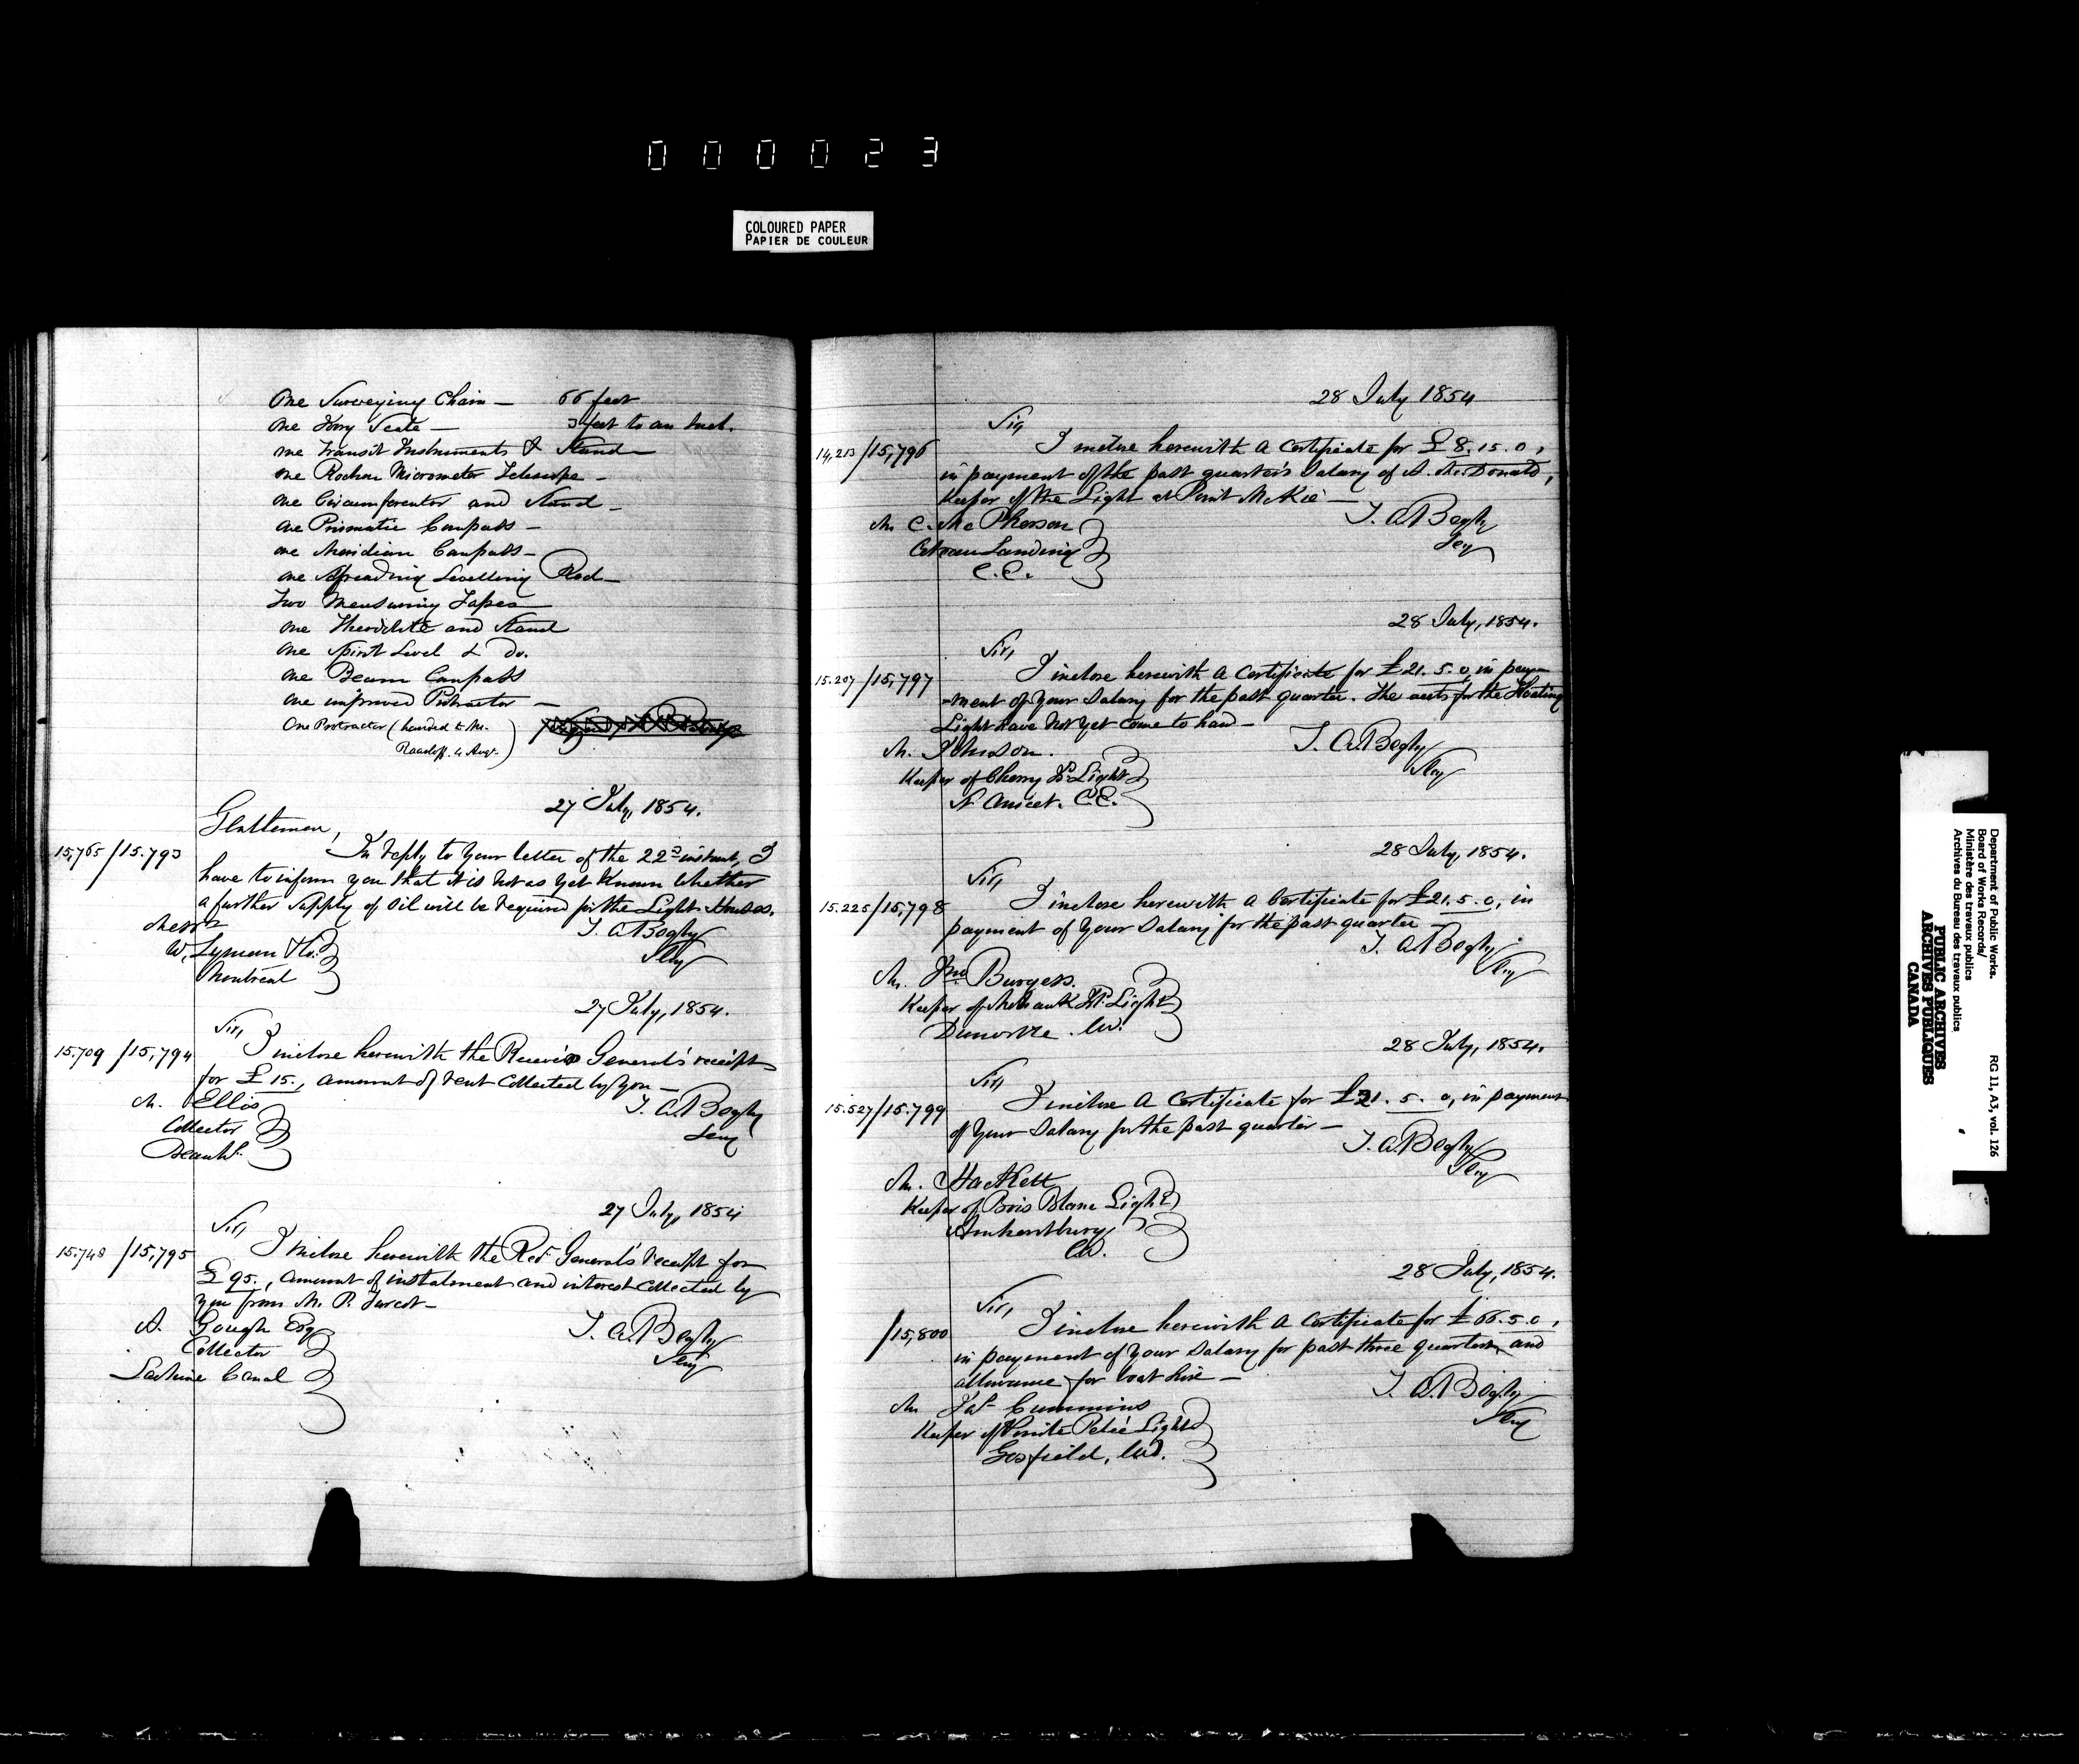 000023
COLOURED PAPER
PAPIER DE COULEUR
One Surveying Chain — 66 feet
One Ivory Scale — 3 feet to an Inch.
one Transit Instruments & Stand —
one Rochon Micrometer Telescope —
one Circumferentor and Stand —
one Prismatic Compass —
one Meridian Compass —
one Spreading Levelling Rod —
Two Measuring Tapes —
one Theodolite and Stand
one Spirit Level & Do.
one Beam Compass
one improved Protractor —
One Protractor (handed to Mr.
4 Augt.)
27 July, 1854.
Gentlemen,
15,765/15.793 In reply to your letter of the 22d instant, I
have to inform you that it is not as yet known whether
a further supply of Oil will be required for the Light Houses.
Messrs
W. Lyman & Co.
Montreal
T. A. Begly
Secy
27 July, 1854.
Sir,
15.709/15,794 I inclose herewith the Receiver General's receipt
for £15., amount of rent collected by you —
M. Ellis
Collector
Beauhs.
T. A. Begly
Secy
27 July, 1854
Sir,
15.748/15,795 I inclose herewith the Recr General's receipt for
£95., amount of instalment and interest collected by
you from M. P. Turcot —
A. Gough Esq
Collector
Lachine Canal
T. A. Begly
Secy
28 July 1854
Sir,
14,213/15,796 I inclose herewith a Certificate for £8.15.0,
in payment of the past quarter's Salary of A. McDonald,
Keeper of the Light at Point McKie —
Mr. C. McPherson
Coteau Landing
C.E.
T. A. Begly
Secy
28 July, 1854.
Sir,
15.207/15,797 I inclose herewith a Certificate for £21.5.0, in pay
-ment of your Salary for the past quarter. The accts for the Floating
Light have not yet come to hand —
M. Johnson.
Keeper of Cherry Pt. Light
St Anicet. C.E.
T. A. Begly
Secy
28 July, 1854.
Sir,
15.225/15,798 I inclose herewith a Certificate for £21.5.0, in
payment of your Salary for the past quarter —
M. Jno. Burgess.
Keeper of Mohauk Pt. Light
Dunville. CW.
T. A. Begly
Secy
28 July, 1854.
Sir,
15.527/15.799 I inclose a Certificate for £21.5.0, in payment
of your Salary for the past quarter —
M. Hackett
Keeper of Bois Blanc Light
Amherstburg
CW.
T. A. Begly
Secy
28 July, 1854.
Sir,
/15,800 I inclose herewith a Certificate for £66.5.0,
in payment of your Salary for past three quarters, and
allowance for boat hire —
M. Jas. Cummins
Keeper of Pointe Peleé Light
Gosfield, CW.
T. A. Begly
Secy
Department of Public Works.
Board of Works Records/
Ministère des travaux publics
Archives du Bureau des travaux publics
RG 11, A3, vol. 126
PUBLIC ARCHIVES
ARCHIVES PUBLIQUES
CANADA